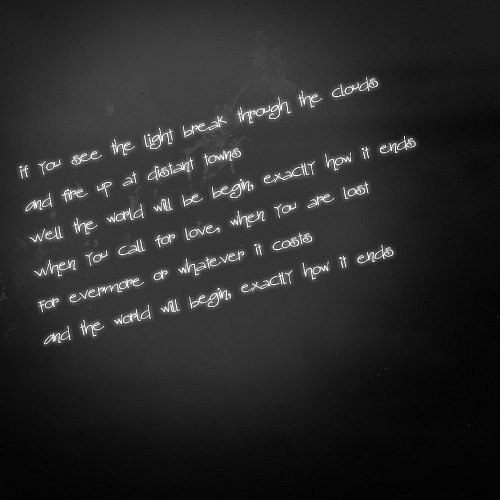 if you see the light break through the clouds
and fire up at distant towns
well the world will be begin, exactly how it ends
when you call for love, when you are lost
for evermore or whatever it costs
and the world will begin, exactly how it ends